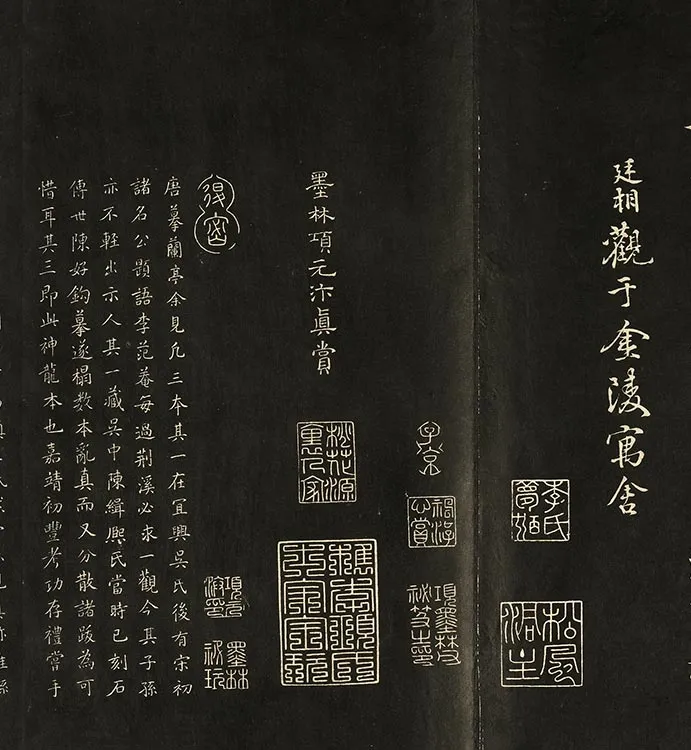 廷相觀于金陵寓舍
子京
項墨林祕笈之印
墨林項元汴真賞
桃花源裏人家
檇李項氏士家寶玩
項元汴印
墨林祕玩
唐摹蘭亭余見凡三本其一在宜興吳氏後有宋初
諸名公題語李范菴每過荆溪必求一觀今其子孫
亦不輕出示人其一藏吳中陳緝熙氏當時已刻石
傳世陳好鉤摹遂搨數本亂真而又分散諸跋為可
惜耳其三即此神龍本也嘉靖初豐考功存禮嘗手